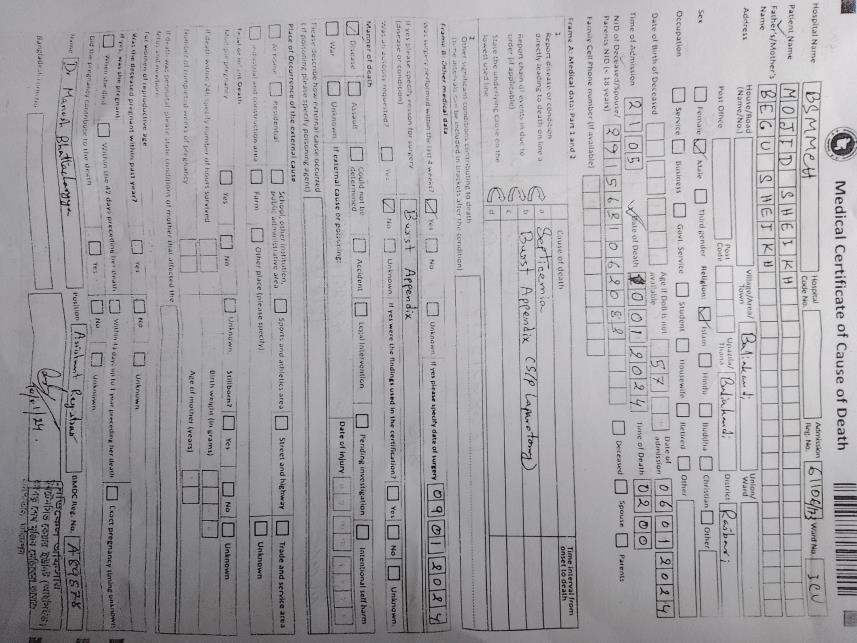 Medical Certificate of Cause of Death
Hospital Name BSMMCH Hospital Code No. Admission Reg. No. Word No. ICU
Patient Name MOJID SHEIKH
Father's/Mother's Name BEGU SHEIKH
Address House/Road (Name/No.) Village/Area/Town Baliakandi Union/Ward
Post Office Post Code Upazila/Thana Baliakandi District Rajbari
Sex Female Male Third gender Religion: Islam Hindu Buddha Christian Other
Occupation Service Business Govt. Service Student Housewife Retired Other
Date of Birth of Deceased Age if DoB is not available 57 Date of admission 06012024
Time of Admission 2105 Date of Death 10012024 Time of Death 0200
NID of Deceased/Spouse/Parents NID (< 18 years) 2915681062082 Deceased Spouse Parents
Family Cell Phone number (if available)
Frame A: Medical data: Part 1 and 2
Cause of death Time interval from onset to death
1 Report disease or condition directly leading to death on line a a Septicemia
Report chain of events in due to order (if applicable) b Burst Appendix (S/P Laparotomy)
State the underlying cause on the lowest used line c
d
2 Other significant conditions contributing to death (time intervals can be included in brackets after the condition)
Frame B: Other medical data
Was surgery performed within the last 4 weeks? Yes No Unknown If yes please specify date of surgery 09012024
If yes please specify reason for surgery (disease or condition) Burst Appendix
Was an autopsy requested? Yes No Unknown If yes were the findings used in the certification? Yes No Unknown
Manner of death
Disease Assault Could not be determined Accident Legal intervention Pending investigation Intentional self harm
War Unknown If external cause or poisoning: Date of injury
Please describe how external cause occurred (if poisoning please specify poisoning agent)
Place of Occurrence of the external cause
At home Residential School, other institution, public administrative area Sports and athletics area Street and highway Trade and service area
Industrial and construction area Farm Other place (please specify) Unknown
Fetal or infant Death
Multiple pregnancy Yes No Unknown Stillborn? Yes No Unknown
If death within 24h specify number of hours survived Birth weight (in grams)
Number of completed weeks of pregnancy Age of mother (years)
If death was perinatal, please state conditions of mother that affected the fetus and newborn
For women of reproductive age
Was the deceased pregnant within past year? Yes No Unknown
If yes, was she pregnant:
When she died Within the 42 days preceding her death Within 43 days up to 1 year preceding her death Exact pregnancy timing unknown
Did the pregnancy contribute to the death Yes No Unknown
Name Dr Manosh Bhattacharyya Position Assistant Registrar BMDC Reg. No. A89578